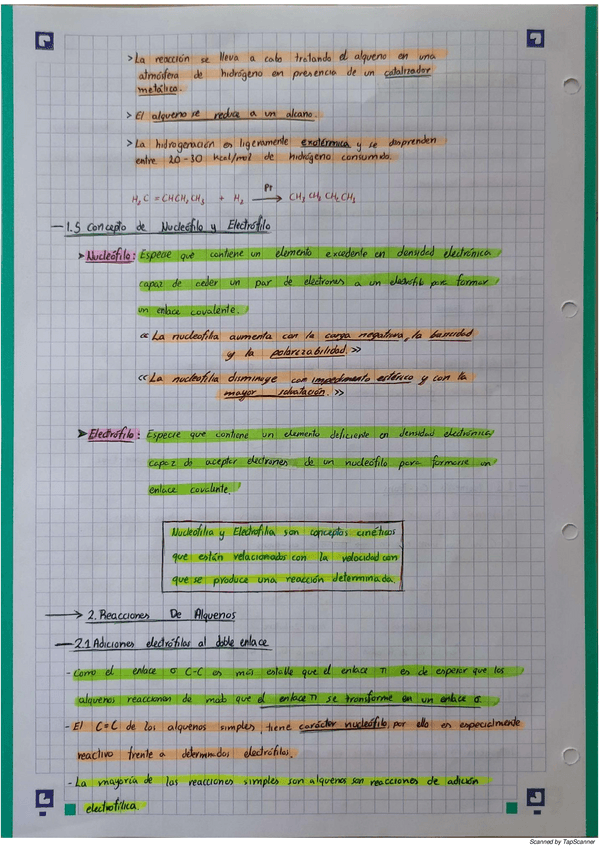 > La reacción se lleva a cabo tratando el alqueno en una
atmósfera de hidrógeno en presencia de un catalizador
metálico.
> El alqueno se reduce a un alcano.
> La hidrogenación es ligeramente exotérmica y se desprenden
entre 20-30 kcal/mol de hidrógeno consumido.
H₂C = CHCH₂CH₃ + H₂ —Pt→ CH₃CH₂CH₂CH₃
— 1.5 Concepto de Nucleófilo y Electrófilo
➤ Nucleófilo: Especie que contiene un elemento excedente en densidad electrónica
capaz de ceder un par de electrones a un electrófilo para formar
un enlace covalente.
<< La nucleofilia aumenta con la carga negativa, la basicidad
y la polarizabilidad. >>
<< La nucleofilia disminuye con impedimento estérico y con la
mayor solvatación. >>
➤ Electrófilo: Especie que contiene un elemento deficiente en densidad electrónica
capaz de aceptar electrones de un nucleófilo para formarse un
enlace covalente.
Nucleofilia y Electrofilia son conceptos cinéticos
que están relacionados con la velocidad con
que se produce una reacción determinada.
→ 2. Reacciones De Alquenos
— 2.1 Adiciones electrófilas al doble enlace
- Como el enlace σ C-C es más estable que el enlace π es de esperar que los
alquenos reaccionen de modo que el enlace π se transforme en un enlace σ.
- El C=C de los alquenos simples, tiene carácter nucleófilo, por ello es especialmente
reactivo frente a determinados electrófilos.
- La mayoría de las reacciones simples son alquenos son reacciones de adición
electrofílica.
Scanned by TapScanner